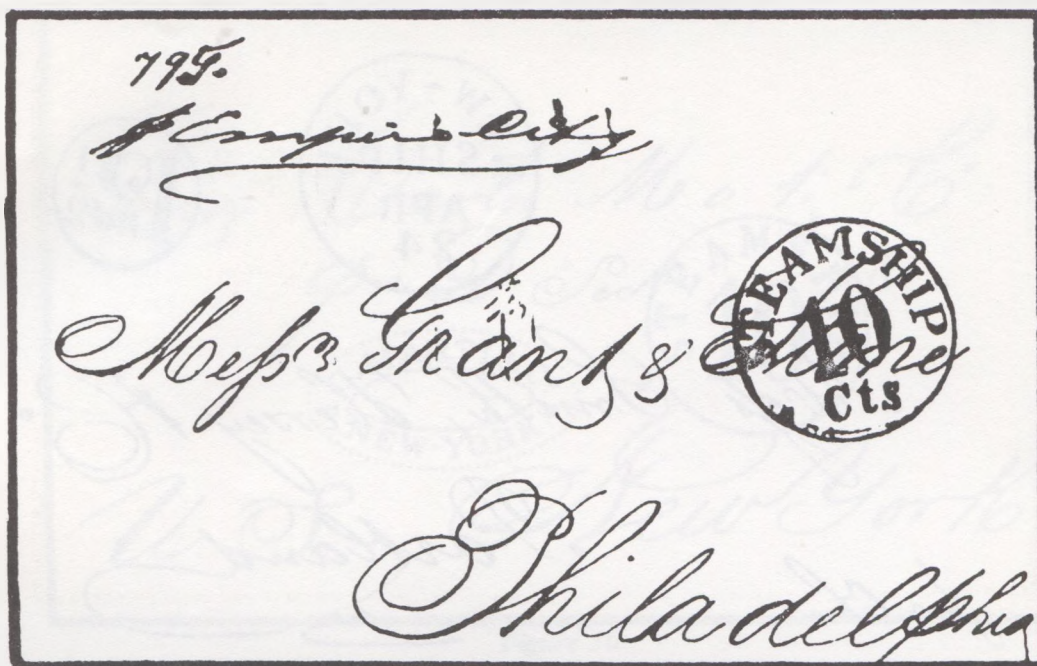 79 F.
p Empire City
Messrs Grant & Stone
STEAMSHIP
10
Cts
Philadelphia